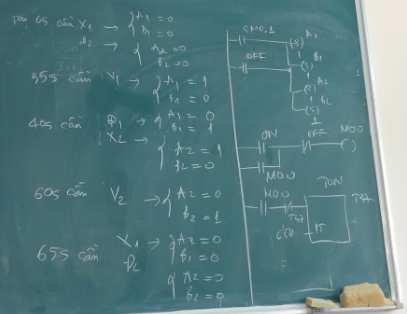 6s cần X1 → { A1 = 0
B1 = 0
D2 → { A2 = 0
B2 = 0
35s cần V1 → { A1 = 1
B1 = 0
40s cần Đ1 → { A1 = 0
B1 = 1
X2 → { A2 = 1
B2 = 0
60s cần V2 → { A2 = 0
B2 = 1
65s cần X1 → { A2 = 0
B1 = 0
Đ2
{ A2 = 0
B2 = 0
SM0.1
A1
(S)
OFF
B1
(S)
A2
(S)
B2
(S)
1
ON
OFF
M0.0
M0.0
M0.0
T37
TON
T37
650
PT